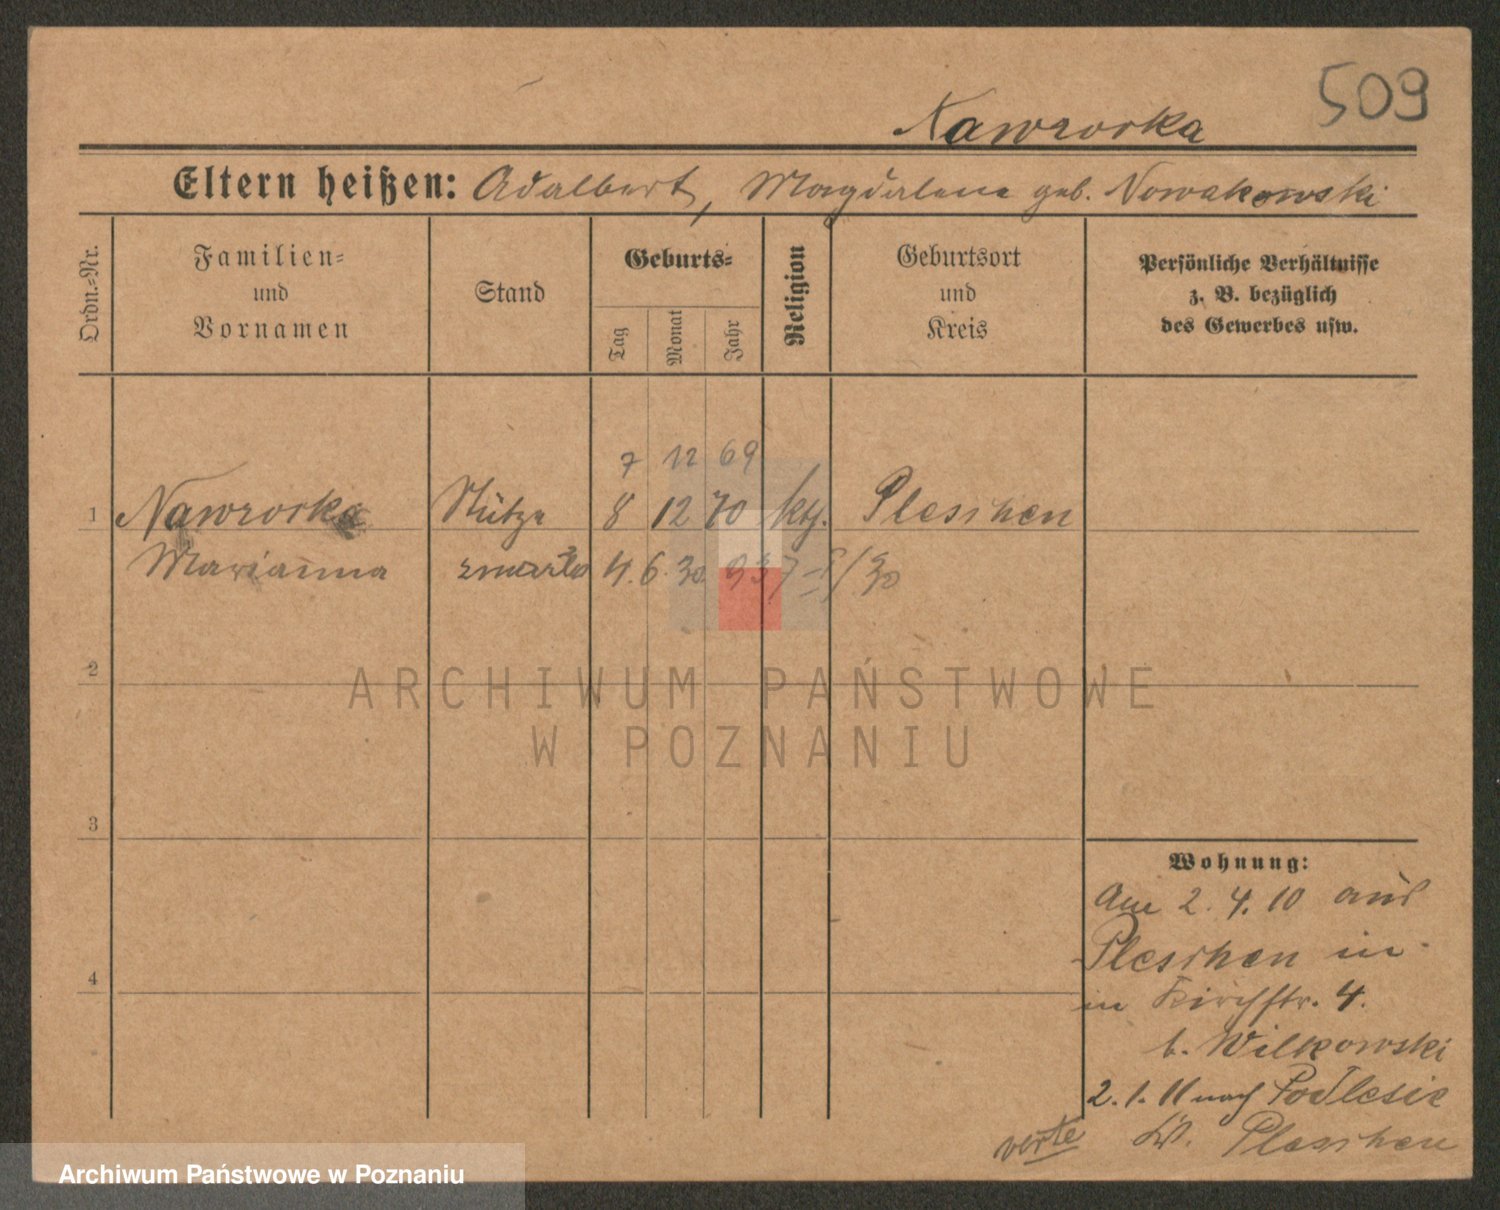 509
Nawrocka
Eltern heißen: Adalbert, Magdalena geb. Nowakowski
Ordn.-Nr.
Familien-
und
Vornamen
Stand
Geburts-
Tag
Monat
Jahr
Religion
Geburtsort
und
Kreis
Persönliche Verhältnisse
z. B. bezüglich
des Gewerbes usw.
7 12 69
1 Nawrocka Stütze 8 12 70 kth. Pleschen
Marianna zmarła 4.6.30 /30
2
ARCHIWUM PAŃSTWOWE
W POZNANIU
3
4
Wohnung:
Am 2.4.10 aus
Pleschen in
in Kirchstr. 4.
b. Wilkowski
2.1.11 nach Podlesie
Kr. Pleschen
verte
Archiwum Państwowe w Poznaniu